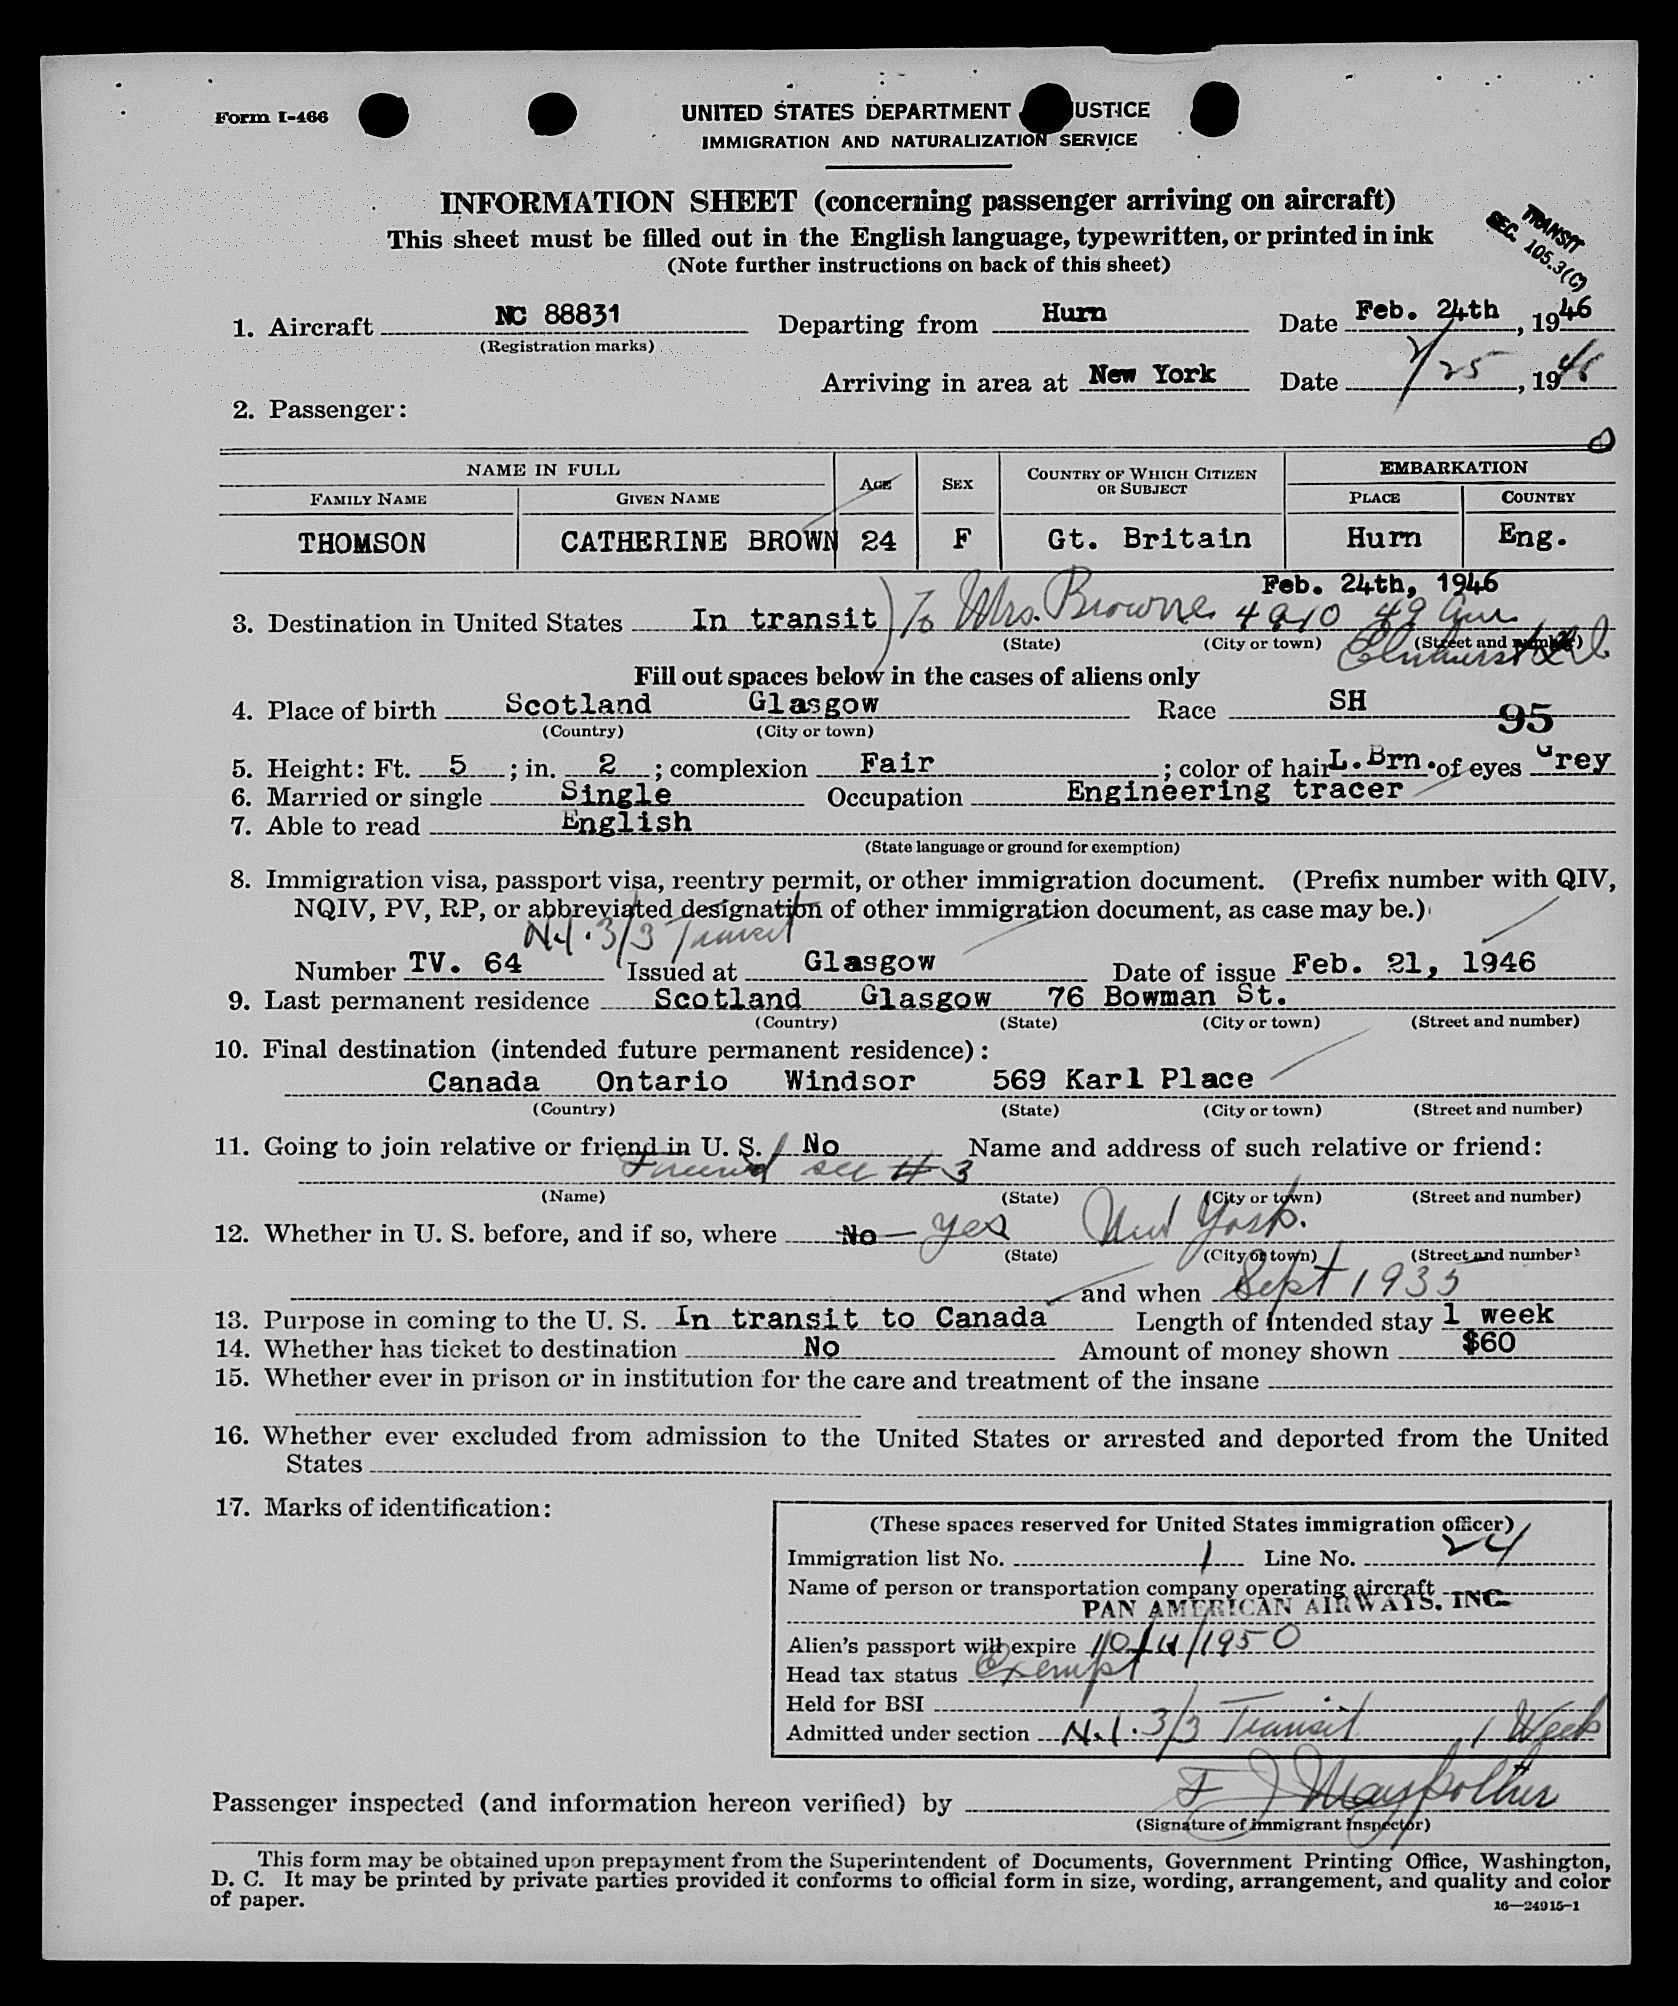 Form I-466
UNITED STATES DEPARTMENT USTICE
IMMIGRATION AND NATURALIZATION SERVICE
INFORMATION SHEET (concerning passenger arriving on aircraft)
This sheet must be filled out in the English language, typewritten, or printed in ink
(Note further instructions on back of this sheet)
TRANSIT
SEC. 105.3(C)
1. Aircraft NC 88831 Departing from Hurn Date Feb. 24th, 1946
(Registration marks)
Arriving in area at New York Date 2/25, 1946
2. Passenger:
NAME IN FULL AGE SEX COUNTRY OF WHICH CITIZEN OR SUBJECT EMBARKATION
FAMILY NAME GIVEN NAME PLACE COUNTRY
THOMSON CATHERINE BROWN 24 F Gt. Britain Hurn Eng.
Feb. 24th, 1946
3. Destination in United States In transit) To Mrs. Browne 4910 49 Ave
(State) (City or town) (Street and number)
Elmhurst L I.
Fill out spaces below in the cases of aliens only
4. Place of birth Scotland Glasgow Race SH 95
(Country) (City or town)
5. Height: Ft. 5; in. 2; complexion Fair; color of hair L.Brn. of eyes Grey
6. Married or single Single Occupation Engineering tracer
7. Able to read English
(State language or ground for exemption)
8. Immigration visa, passport visa, reentry permit, or other immigration document. (Prefix number with QIV,
NQIV, PV, RP, or abbreviated designation of other immigration document, as case may be.)
N.I. 3/3 Transit
Number TV. 64 Issued at Glasgow Date of issue Feb. 21, 1946
9. Last permanent residence Scotland Glasgow 76 Bowman St.
(Country) (State) (City or town) (Street and number)
10. Final destination (intended future permanent residence):
Canada Ontario Windsor 569 Karl Place
(Country) (State) (City or town) (Street and number)
11. Going to join relative or friend in U. S. No Name and address of such relative or friend:
Friend see # 3
(Name) (State) (City or town) (Street and number)
12. Whether in U. S. before, and if so, where No — yes New York.
(State) (City or town) (Street and number)
and when Sept 1935
13. Purpose in coming to the U. S. In transit to Canada Length of intended stay 1 week
14. Whether has ticket to destination No Amount of money shown $60
15. Whether ever in prison or in institution for the care and treatment of the insane
16. Whether ever excluded from admission to the United States or arrested and deported from the United
States
17. Marks of identification:
(These spaces reserved for United States immigration officer)
Immigration list No. 1 Line No. 24
Name of person or transportation company operating aircraft
PAN AMERICAN AIRWAYS, INC.
Alien's passport will expire 10/11/1950
Head tax status Exempt
Held for BSI
Admitted under section N.I. 3/3 Transit 1 Week
Passenger inspected (and information hereon verified) by F J
(Signature of immigrant inspector)
This form may be obtained upon prepayment from the Superintendent of Documents, Government Printing Office, Washington,
D. C. It may be printed by private parties provided it conforms to official form in size, wording, arrangement, and quality and color
of paper.
16—24915-1